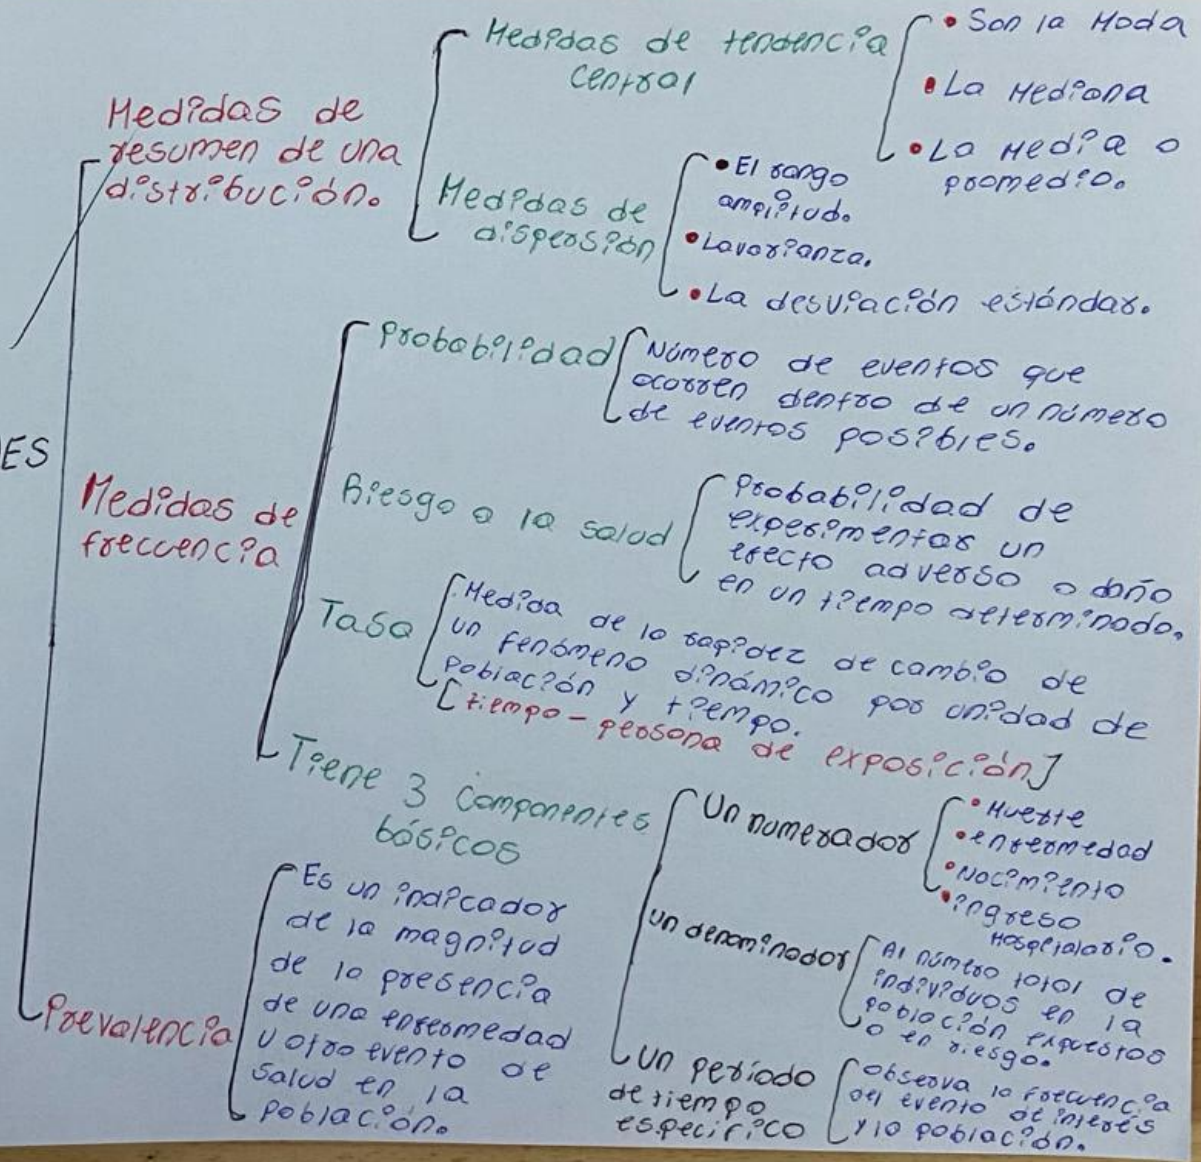 ES
Medidas de
resumen de una
distribución.
Medidas de tendencia
central
• Son la Moda
• La Mediana
• La Media o
promedio.
Medidas de
dispersión
• El rango
amplitud.
• La varianza.
• La desviación estándar.
Medidas de
frecuencia
Probabilidad
Número de eventos que
ocurren dentro de un número
de eventos posibles.
Riesgo a la salud
Probabilidad de
experimentar un
efecto adverso o daño
en un tiempo determinado.
Tasa
Medida de la rapidez de cambio de
un fenómeno dinámico por unidad de
población y tiempo.
[tiempo - persona de exposición]
Tiene 3 componentes
básicos
Un numerador
• Muerte
• enfermedad
• Nacimiento
• ingreso
Hospitalario.
Un denominador
Al número total de
individuos en la
población expuestos
o en riesgo.
Un período
de tiempo
específico
Observa la frecuencia
del evento de interés
y la población.
Prevalencia
Es un indicador
de la magnitud
de la presencia
de una enfermedad
u otro evento de
salud en la
población.